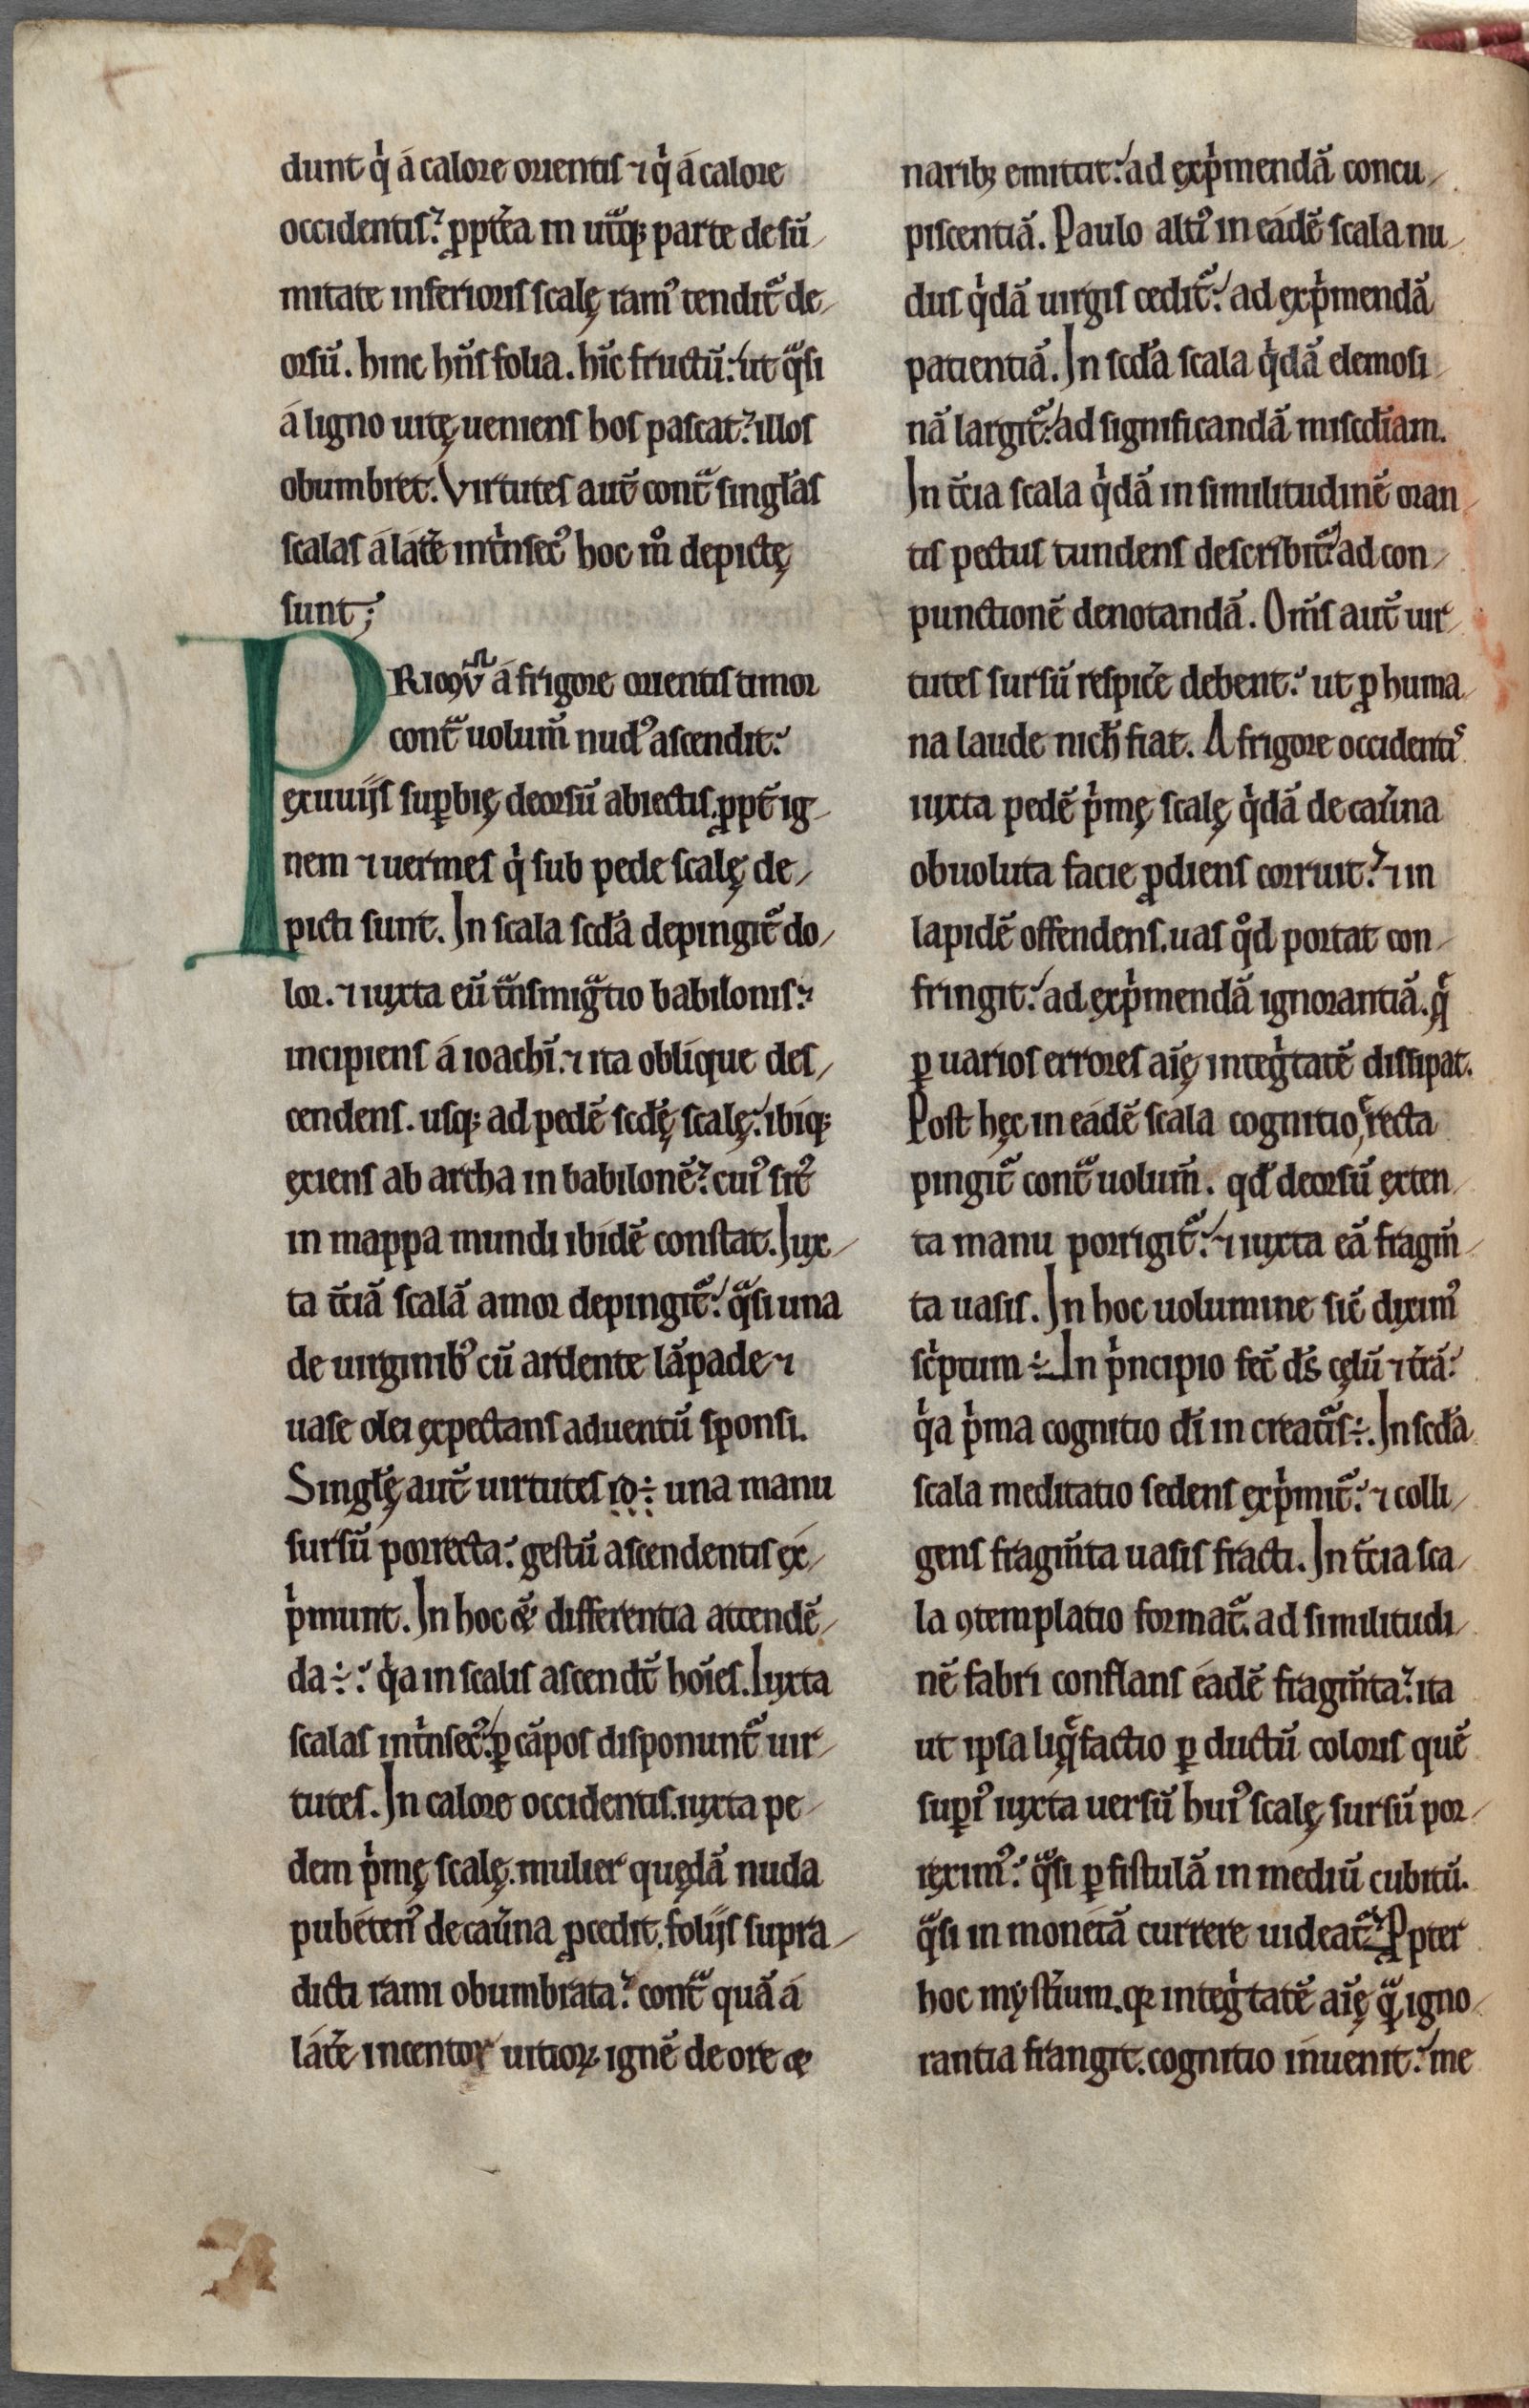 dunt q̍ á calore orientis ⁊ q̍ á calore
occidentis. ꝓpt̄ea in ut̄q; parte de sū
mitate inferioris scalę ram᷒ tendit̄ de
orsū. hinc hn̄s folia. hīc fructū. ut q̄si
á ligno uitę ueniens hos pascat. illos
obumbret. Virtutes aut̄ cont̄ singl̄as
scalas á lat̄e int̍nsec᷒ hoc m̊ depictę
sunt;
PRIMU̅ á frigore orientis timor
cont̄ uolum̄ nud᷒ ascendit.
exuuijs suꝑbię deorsū abiectis. ꝓpt̄ ig
nem ⁊ uermes q̍ sub pede scalę de
picti sunt. In scala scd̄a depingit̄ do
lor. ⁊ iuxta eū t̄nsmiḡtio babilonis.
incipiens á ioachī. ⁊ ita oblique des
cendens. usq; ad pedē scd̄ę scalę. ibiq;
exiens ab archa in babilonē. cui᷒ sit᷒
in mappa mundi ibidē constat. Iux
ta t̄ciā scalā amor depingit̄. q̄si una
de uirginib᷒ cū ardente lāpade ⁊
uase olei expectans aduentū sponsi.
Singl̄ę aut̄ uirtutes id ÷ una manu
sursū porrecta. gestū ascendentis ex
p̍munt. In hoc ē differentia attendē
da ÷. q̍a in scalis ascendt̄ hoīes. Iuxta
scalas int̍nsec᷒. ꝑ cāpos disponunt̄ uir
tutes. In calore occidentis. iuxta pe
dem p̍mę scalę. mulier quędā nuda
pubeten᷒ de caūna ꝓcedit. folijs supra
dicti rami obumbrata. cont̄ quā á
lat̄e incentor uitioꝝ ignē de ore ⁊
narib; emittit. ad exp̍mendā concu
piscentiā. Paulo alti᷒ in eádē scala nu
dus q̍dā uirgis cedit̄. ad exp̍mendā
patientiā. In scd̄a scala q̍dā elemosi
nā largit̄. ad significandā miscd̄iam.
In t̄cia scala q̍dā in similitudinē oran
tis pectus tundens describit̄. ad con
punctionē denotandā. Om̄s aut̄ uir
tutes sursū respic̄e debent. ut ꝓ huma
na laude nich̄ fiat. A frigore occidentis
iuxta pedē p̍mę scalę q̍dā de caūna
obuoluta facie ꝓdiens corruit. ⁊ in
lapidē offendens. uas q̊d portat con
fringit. ad exp̍mendā ignorantiā. q̄
ꝑ uarios errores aīę integ̍tatē dissipat.
Post hęc in eádē scala cognitio, recta
pingit̄ cont̄ uolum̄. qd̄ deorsū exten
ta manu porrigit̄. ⁊ iuxta eā fragm̄
ta uasis. In hoc uolumine sic̄ dixim᷒
sc̍ptum ÷. In p̍ncipio fec̄ ds̄ cęlū ⁊ t̄rā.
q̍a p̍ma cognitio dī in creat̄is ÷. In scd̄a
scala meditatio sedens exp̍mit̄. ⁊ colli
gens fragm̄ta uasis fracti. In t̄cia sca
la ꝯtemplatio format̄. ad similitudi
nē fabri conflans éadē fragm̄ta. ita
ut ipsa liq̄factio ꝑ ductū coloris quē
suꝑi᷒ iuxta uersū hui᷒ scalę sursū por
rexim᷒. q̄si ꝑ fistulā in mediū cubitū.
q̄si in monetā currere uideat̄. Ppter
hoc myst̄ium. qꝛ integ̍tatē aīę q̄ igno
rantia frangit. cognitio inuenit. me